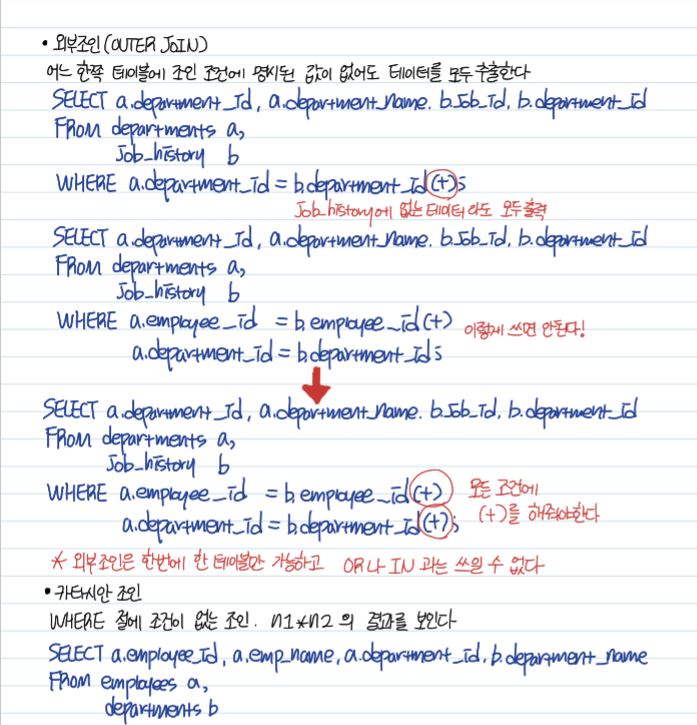 • 외부조인(OUTER JOIN)
어느 한쪽 테이블에 조인 조건에 명시된 값이 없어도 데이터를 모두 추출한다
SELECT a.department_id, a.department_name. b.job_id, b.department_id
FROM departments a,
job_history b
WHERE a.department_id = b.department_id(+);
job_history에 없는 데이터라도 모두 출력
SELECT a.department_id, a.department_name. b.job_id, b.department_id
FROM departments a,
job_history b
WHERE a.employee_id = b.employee_id(+) 이렇게 쓰면 안된다!
a.department_id = b.department_id;
SELECT a.department_id, a.department_name. b.job_id, b.department_id
FROM departments a,
job_history b
WHERE a.employee_id = b.employee_id(+) 모든 조건에
a.department_id = b.department_id(+); (+)를 해줘야한다
* 외부조인은 한번에 한 테이블만 가능하고 OR나 IN 과는 쓰일 수 없다
• 카타시안 조인
WHERE 절에 조건이 없는 조인. n1*n2 의 결과를 보인다
SELECT a.employee_id, a.emp_name, a.department_id, b.department_name
FROM employees a,
departments b